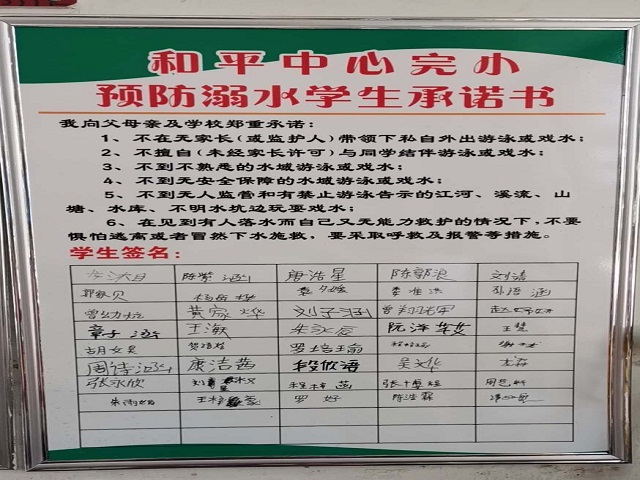 和平中心完小
预防溺水学生承诺书
我向父母亲及学校郑重承诺:
1、不在无家长(或监护人)带领下私自外出游泳或戏水;
2、不擅自(未经家长许可)与同学结伴游泳或戏水;
3、不到不熟悉的水域游泳或戏水;
4、不到无安全保障的水域游泳或戏水;
5、不到无人监管和有禁止游泳告示的江河、溪流、山
塘、水库、不明水坑边玩耍戏水;
6、在见到有人落水而自己又无能力救护的情况下,不要
惧怕逃离或者冒然下水施救,要采取呼救及报警等措施。
学生签名:
陈紫涵 唐浩星 陈郭浪 刘洁
孙语涵
黄家烨 刘子涵
章子涵 王海 王慧
胡女昊 罗培瑜
周诗涵 康洁茜 段欣语 吴文华
张永欣
罗好 陈浩霖